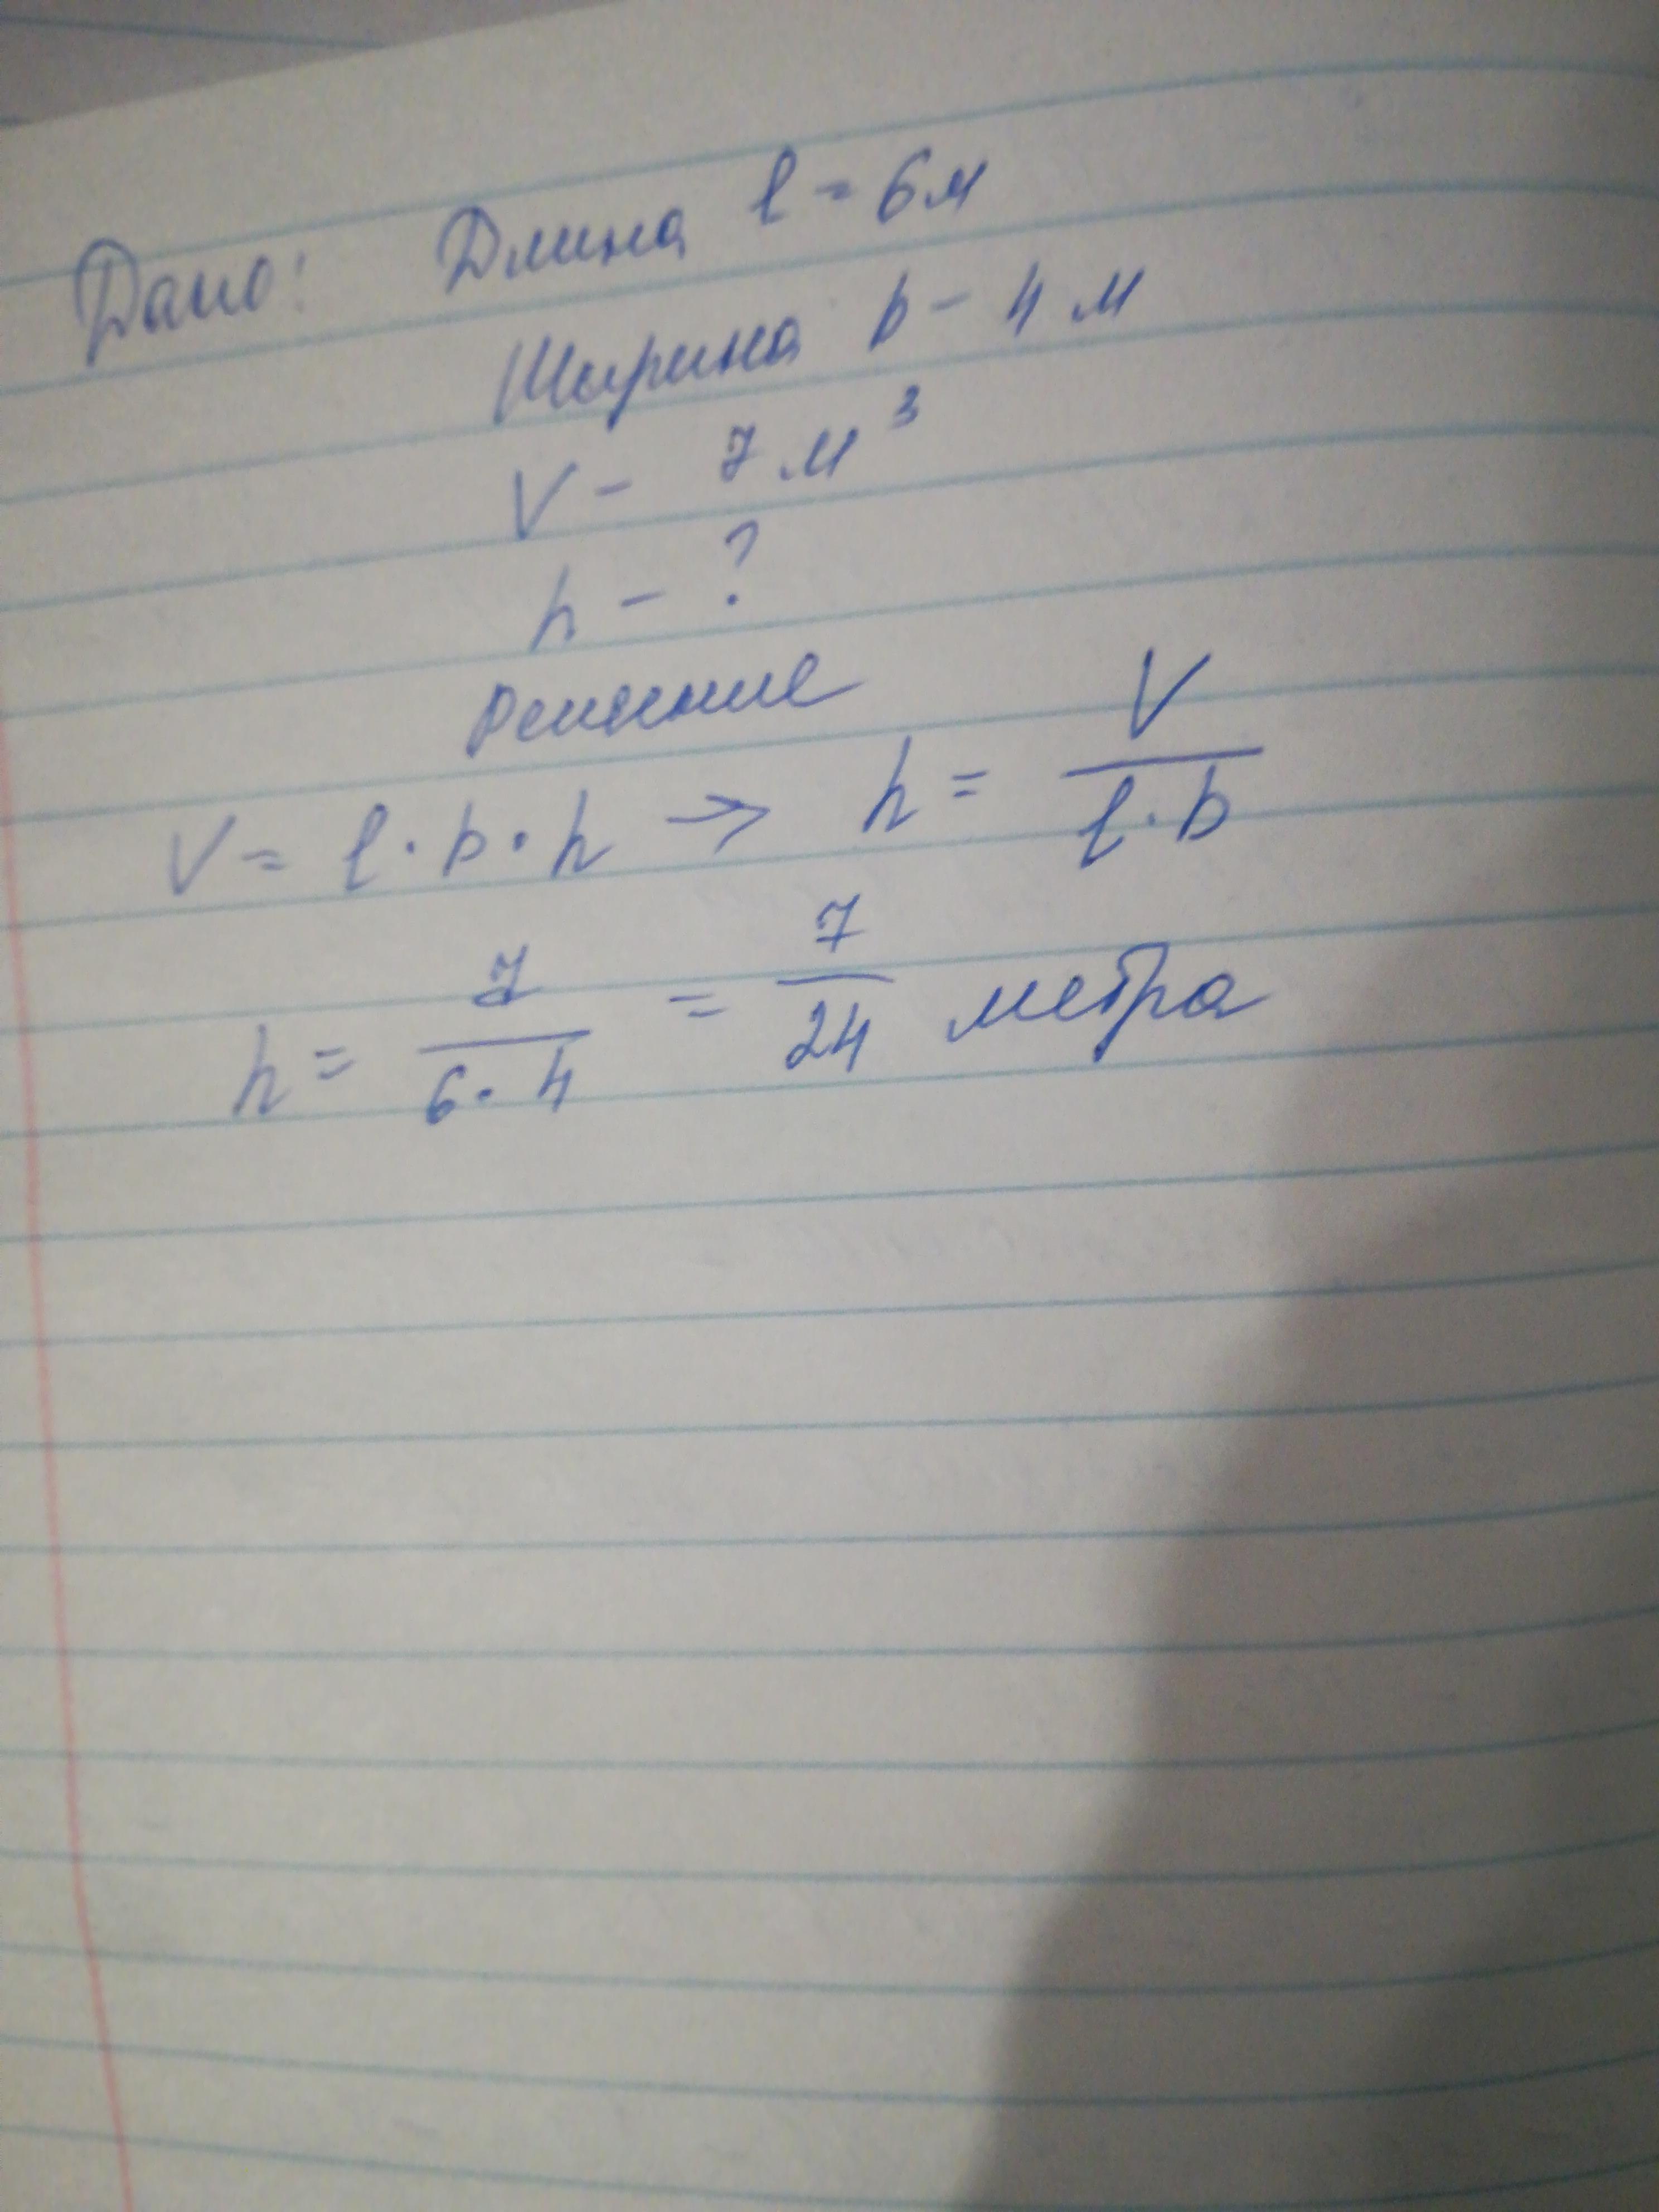 Дано: Длина l = 6м
Ширина b - 4 м
V - 7 м³
h - ?
Решение
V = l · b · h → h = V / l · b
h = 7 / 6 · 4 = 7 / 24 метра